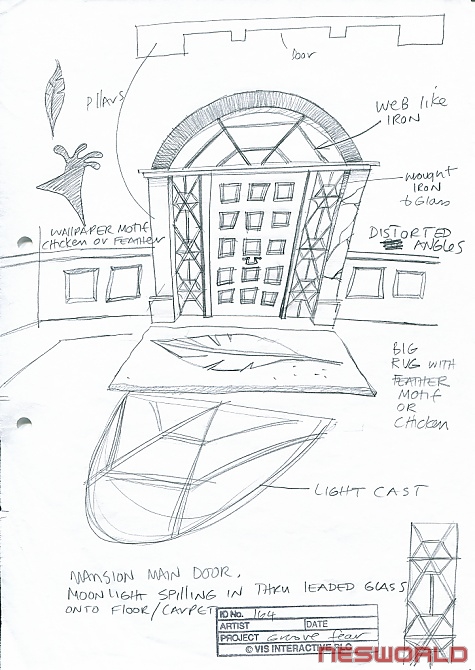 Door
Pillars
Web like
Iron
Wrought
Iron
to Glass
Wallpaper Motif
Chicken or Feather
Distorted
Angles
Big
Rug with
Feather
Motif
or
Chicken
Light Cast
Mansion Main Door.
Moonlight spilling in thru leaded glass
onto floor/carpet
ID No. 164
ARTIST DATE
PROJECT Groove Fear
© VIS INTERACTIVE PLC
NESWORLD